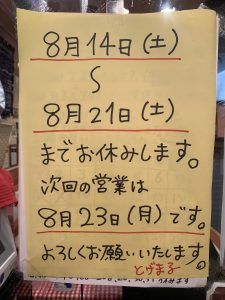 8月14日(土)
〜
8月21日(土)
までお休みします。
次回の営業は
8月23日(月)です。
よろしくお願いいたします。
とげまる